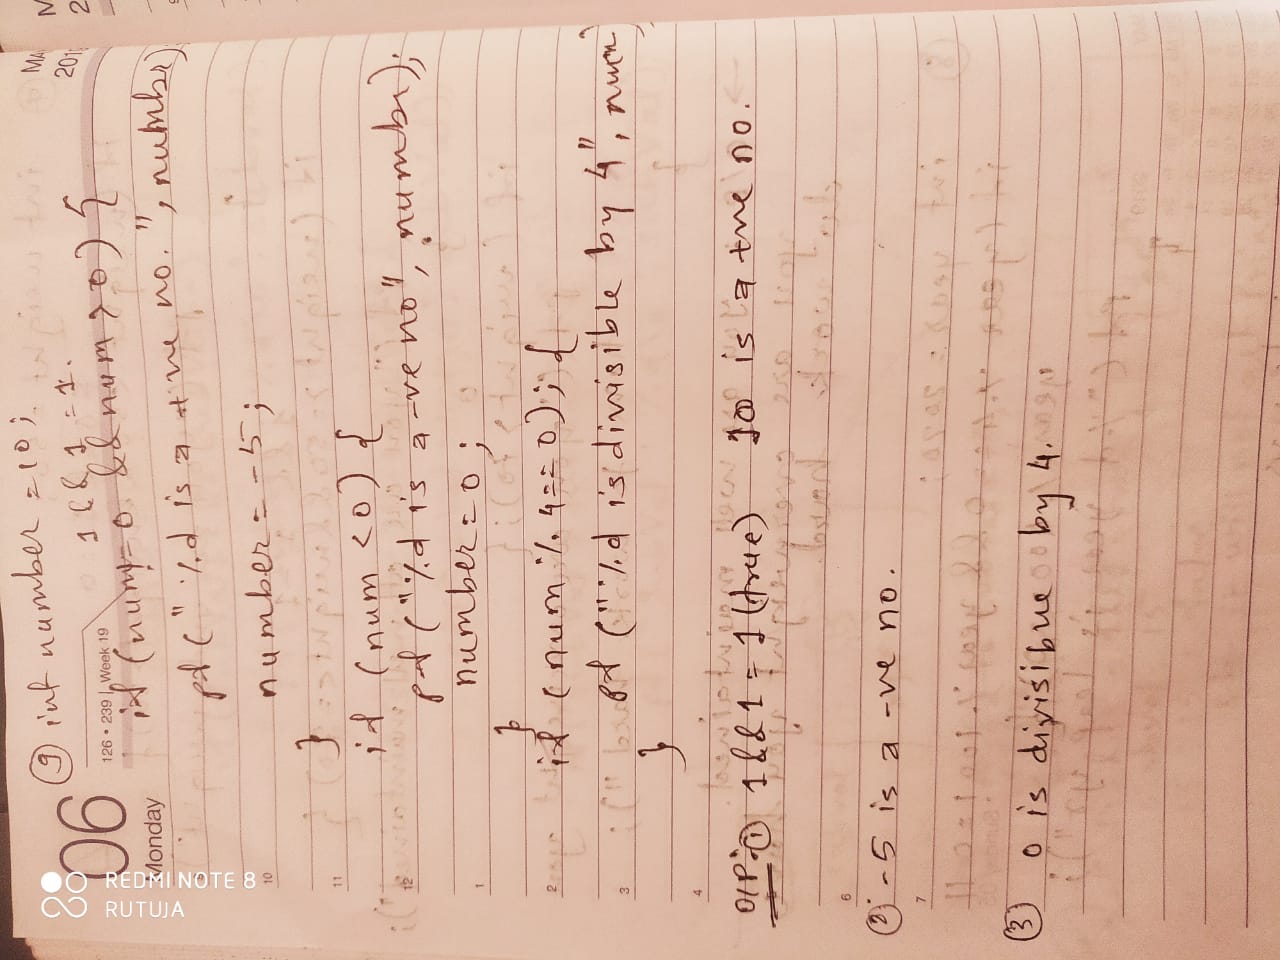 MA
201
06
Monday
126 • 239 | Week 19
9 int number = 10;
1 && 1 = 1.
if (num != 0 && num > 0) {
pf ("%d is a +ve no.", number)
number = -5;
}
if (num < 0) {
pf ("%d is a -ve no", number);
number = 0;
}
if (num % 4 == 0); {
pf ("%d is divisible by 4", num)
}
O/P:- 1 1 && 1 = 1 (true) 10 is a +ve no.
2 -5 is a -ve no.
3 0 is divisible by 4.
10
11
12
1
2
3
4
6
7
REDMI NOTE 8
RUTUJA